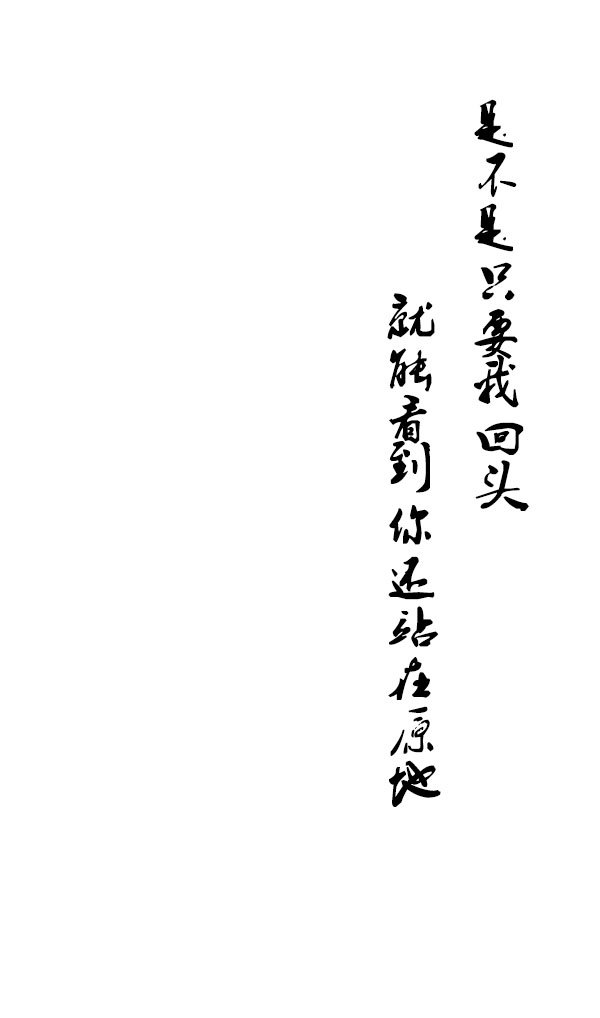 是不是只要我回头
就能看到你还站在原地